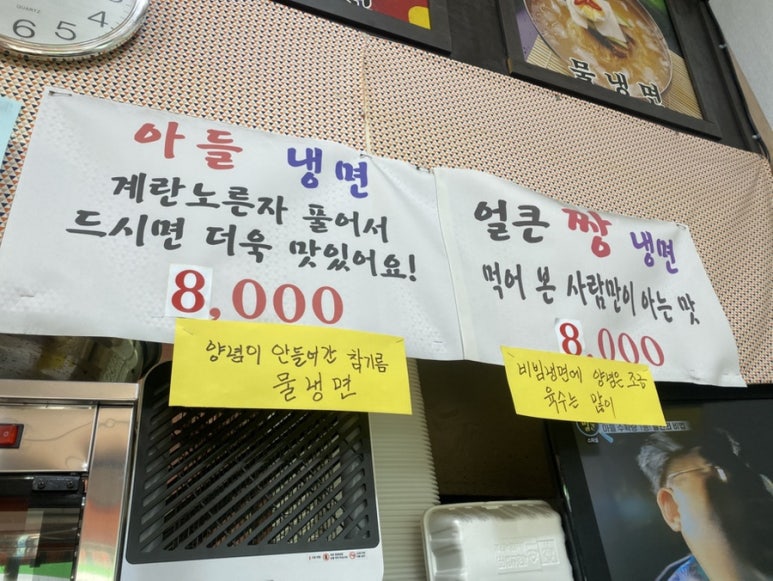 QUARTZ
3
4
5
6
물냉면
아들 냉면
계란노른자 풀어서
드시면 더욱 맛있어요!
8,000
양념이 안들어간 참기름
물냉면
얼큰 짱 냉면
먹어 본 사람만이 아는 맛
8,000
비빔냉면에 양념은 조금
육수는 많이